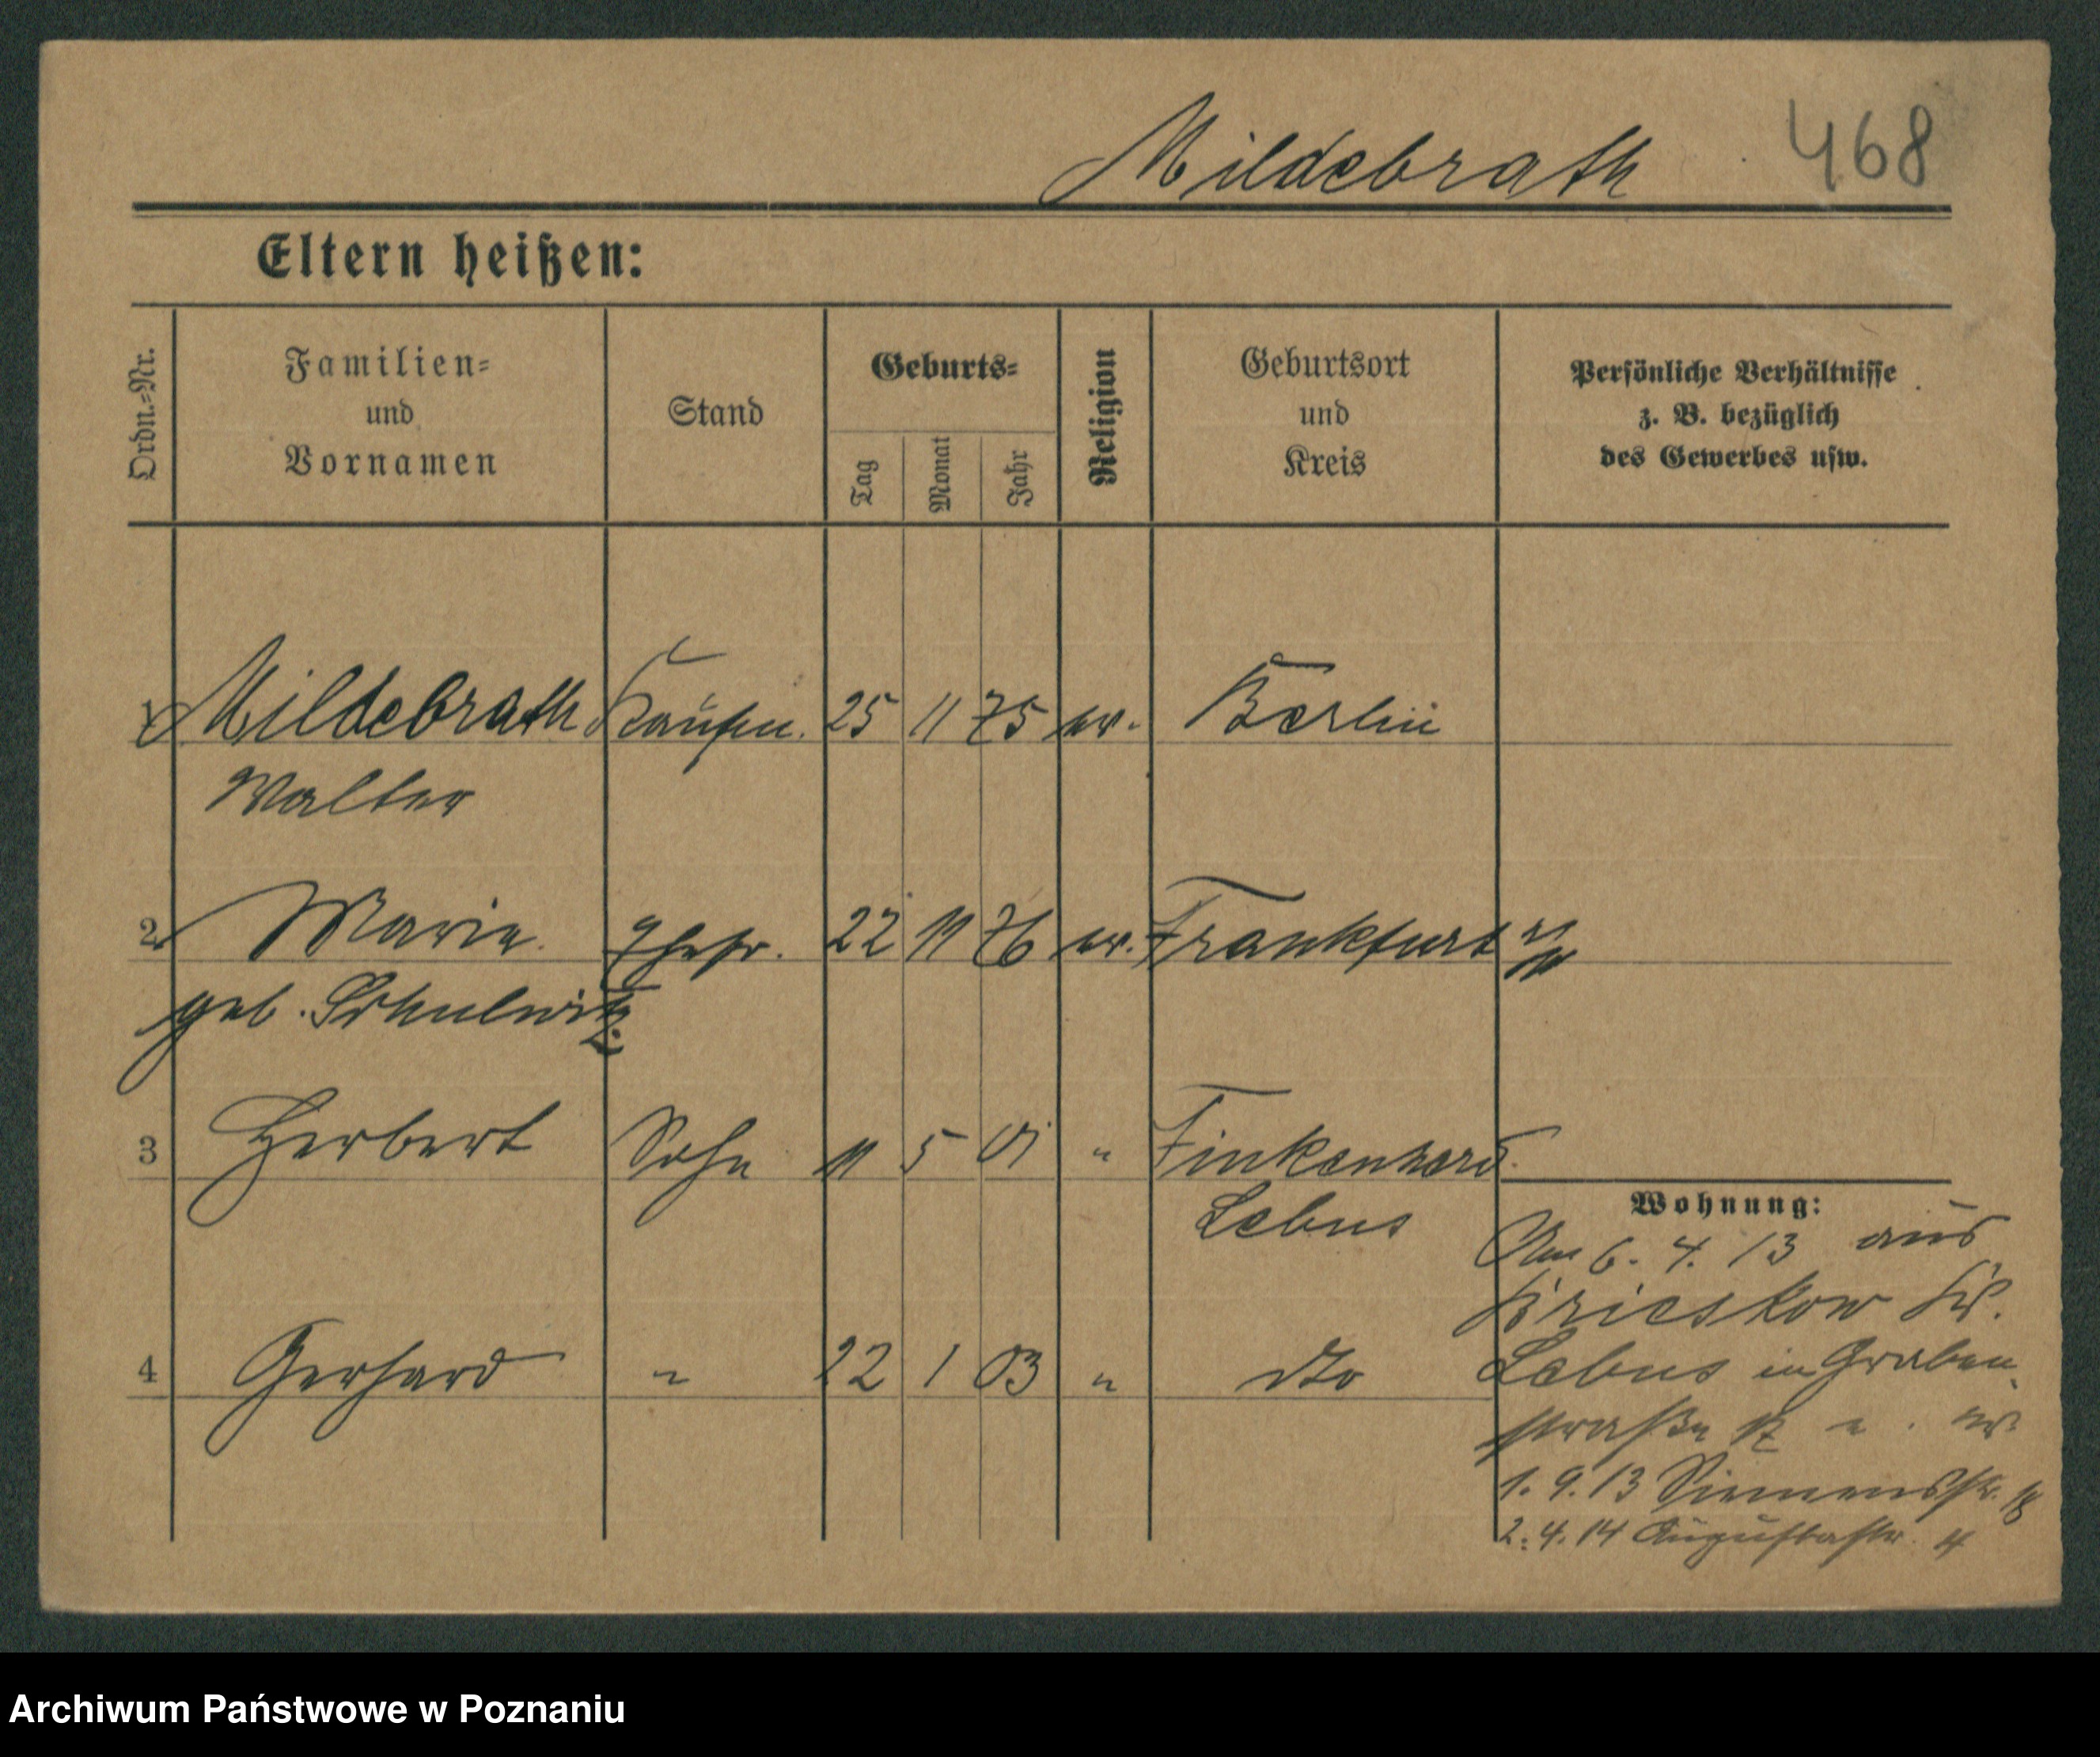 Mildebrath 468
Eltern heißen:
Ordn.-Nr.
Familien-
und
Vornamen
Stand
Geburts-
Tag
Monat
Jahr
Religion
Geburtsort
und
Kreis
Persönliche Verhältnisse
z. B. bezüglich
des Gewerbes usw.
1 Mildebrath Kaufm. 25 11 75 ev. Berlin
Walter
2 Marie Ehefr. 22 11 76 ev. Frankfurt
geb. Schulwitz
3 Herbert Sohn 11 5 01 " Finkenherd
Lebus
4 Gerhard " 22 1 03 " dto
Wohnung:
Am 6. 4. 13 aus
Brieskow Kr.
Lebus in Graben-
straße
1. 9. 13 Siemensstr. 18
2. 4. 14 Augustastr. 4
Archiwum Państwowe w Poznaniu